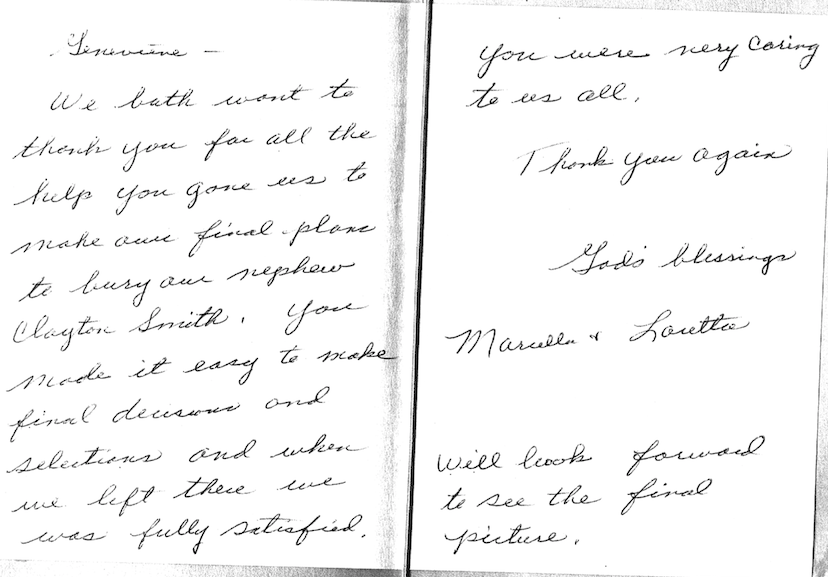 Genevieve –
We both want to
thank you for all the
help you gave us to
make our final plans
to bury our nephew
Clayton Smith. You
made it easy to make
final decisions and
selections and when
we left there we
was fully satisfied.
You were very caring
to us all.
Thank you again
God's blessings
Marcella & Loretta
Will look forward
to see the final
picture.